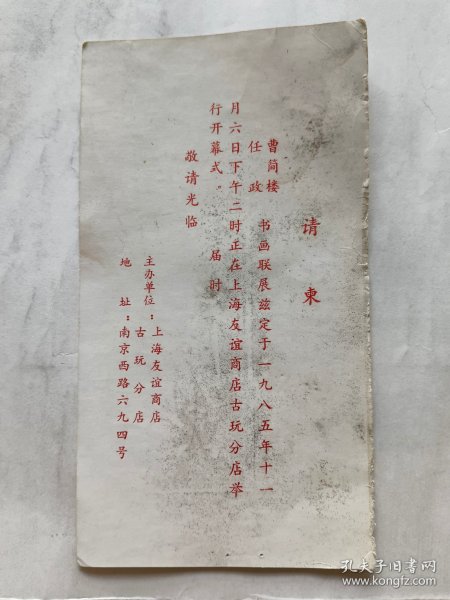 请柬
曹简楼
任政
书画联展兹定于一九八五年十一
月六日下午二时正在上海友谊商店古玩分店举
行开幕式。届时
敬请光临
主办单位：上海友谊商店
古玩分店
地址：南京西路六九四号
孔夫子旧书网
www.kongfz.com